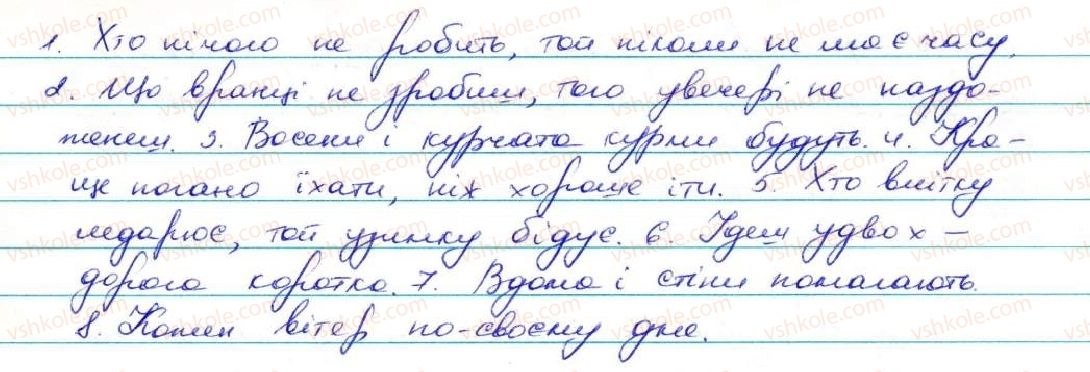 1. Хто нічого не робить, той ніколи не має часу.
2. Що вранці не зробиш, того увечері не наздо-
женеш. 3. Восени і курчата курми будуть. 4. Кра-
ще погано їхати, ніж хороше іти. 5. Хто влітку
ледарює, той узимку бідує. 6. Ідеш удвох –
дорога коротка. 7. Вдома і стіни помагають.
8. Кожен вітер по-своєму дме.